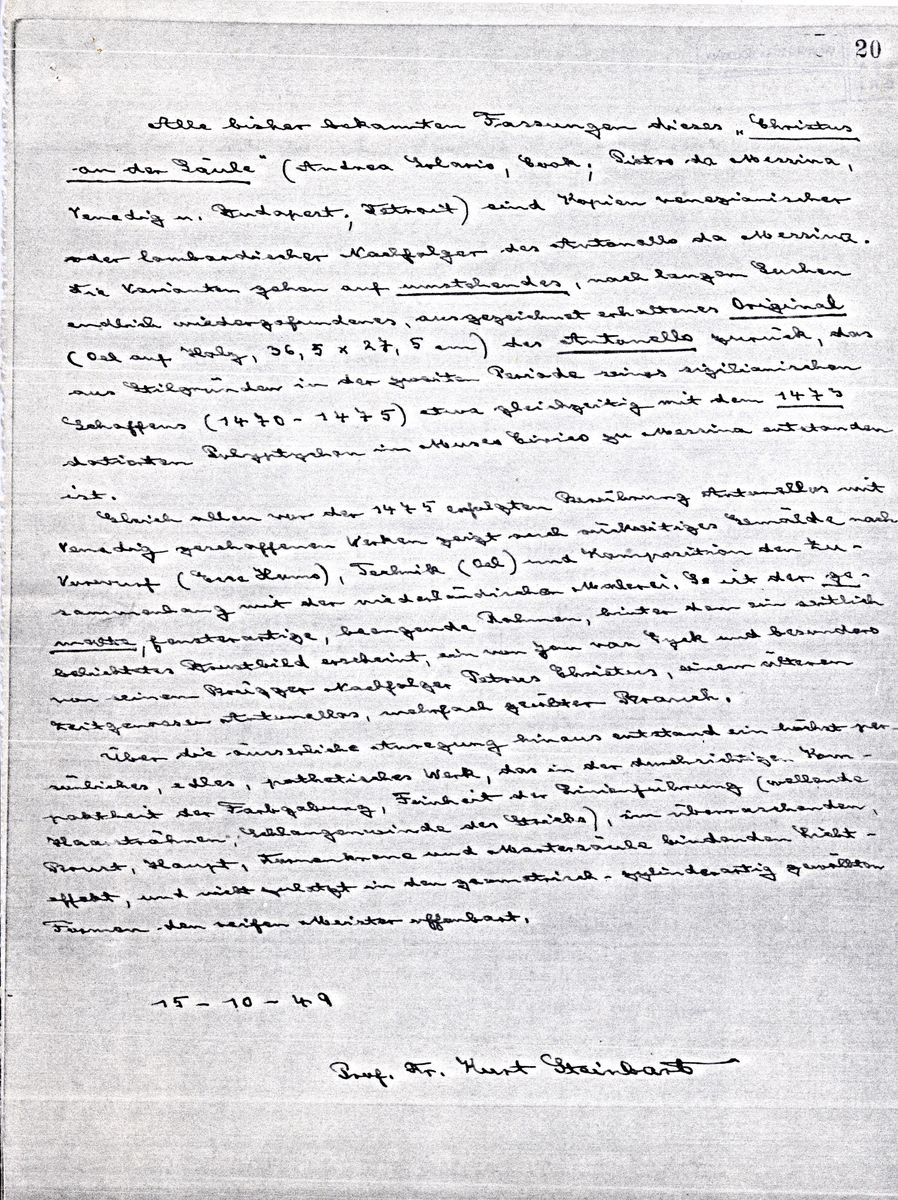 20
Alle bisher bekannten Fassungen dieses „Christus
an der Säule“ (Andrea Solario, Cook; Pietro da Messina,
Venedig u. Budapest; Detroit) sind Kopien venezianischer
oder lombardischer Nachfolger des Antonello da Messina.
Die Varianten gehen auf umstehendes, nach langem Suchen
endlich wiedergefundenes, ausgezeichnet erhaltenes Original
(Oel auf Holz, 36,5 x 27,5 cm) des Antonello zurück, das
aus Stilgründen in der zweiten Periode seines sizilianischen
Schaffens (1470-1475) etwa gleichzeitig mit dem 1473
datierten Polyptychon im Museo Civico zu Messina entstanden
ist.
Gleich allen vor der 1475 erfolgten Berührung Antonellos mit
Venedig geschaffenen Werken zeigt auch rückseitiges Gemälde nach
Vorwurf (Ecce Homo), Technik (Oel) und Komposition den Zu-
sammenhang mit der niederländischen Malerei. So ist der ge-
malte, fensterartige, beengende Rahmen, hinter dem ein seitlich
belichtetes Brustbild erscheint, ein von Jan van Eyck und besonders
von seinem Brügger Nachfolger Petrus Christus, einem älteren
Zeitgenossen Antonellos, mehrfach geübter Brauch.
Über die äusserliche Anregung hinaus entstand ein höchst per-
sönliches, edles, pathetisches Werk, das in der durchsichtigen Kom-
paktheit der Farbgebung, Feinheit der Linienführung (wallende
Haarsträhnen, Schlangenwinde des Stricks), im überraschenden,
Brust, Haupt, Dornenkrone und Martersäule bindenden Licht-
effekt, und nicht zuletzt in den geometrisch-zylinderartig gewölbten
Formen den reifen Meister offenbart.
15-10-49
Prof. Dr. Kurt Steinbart